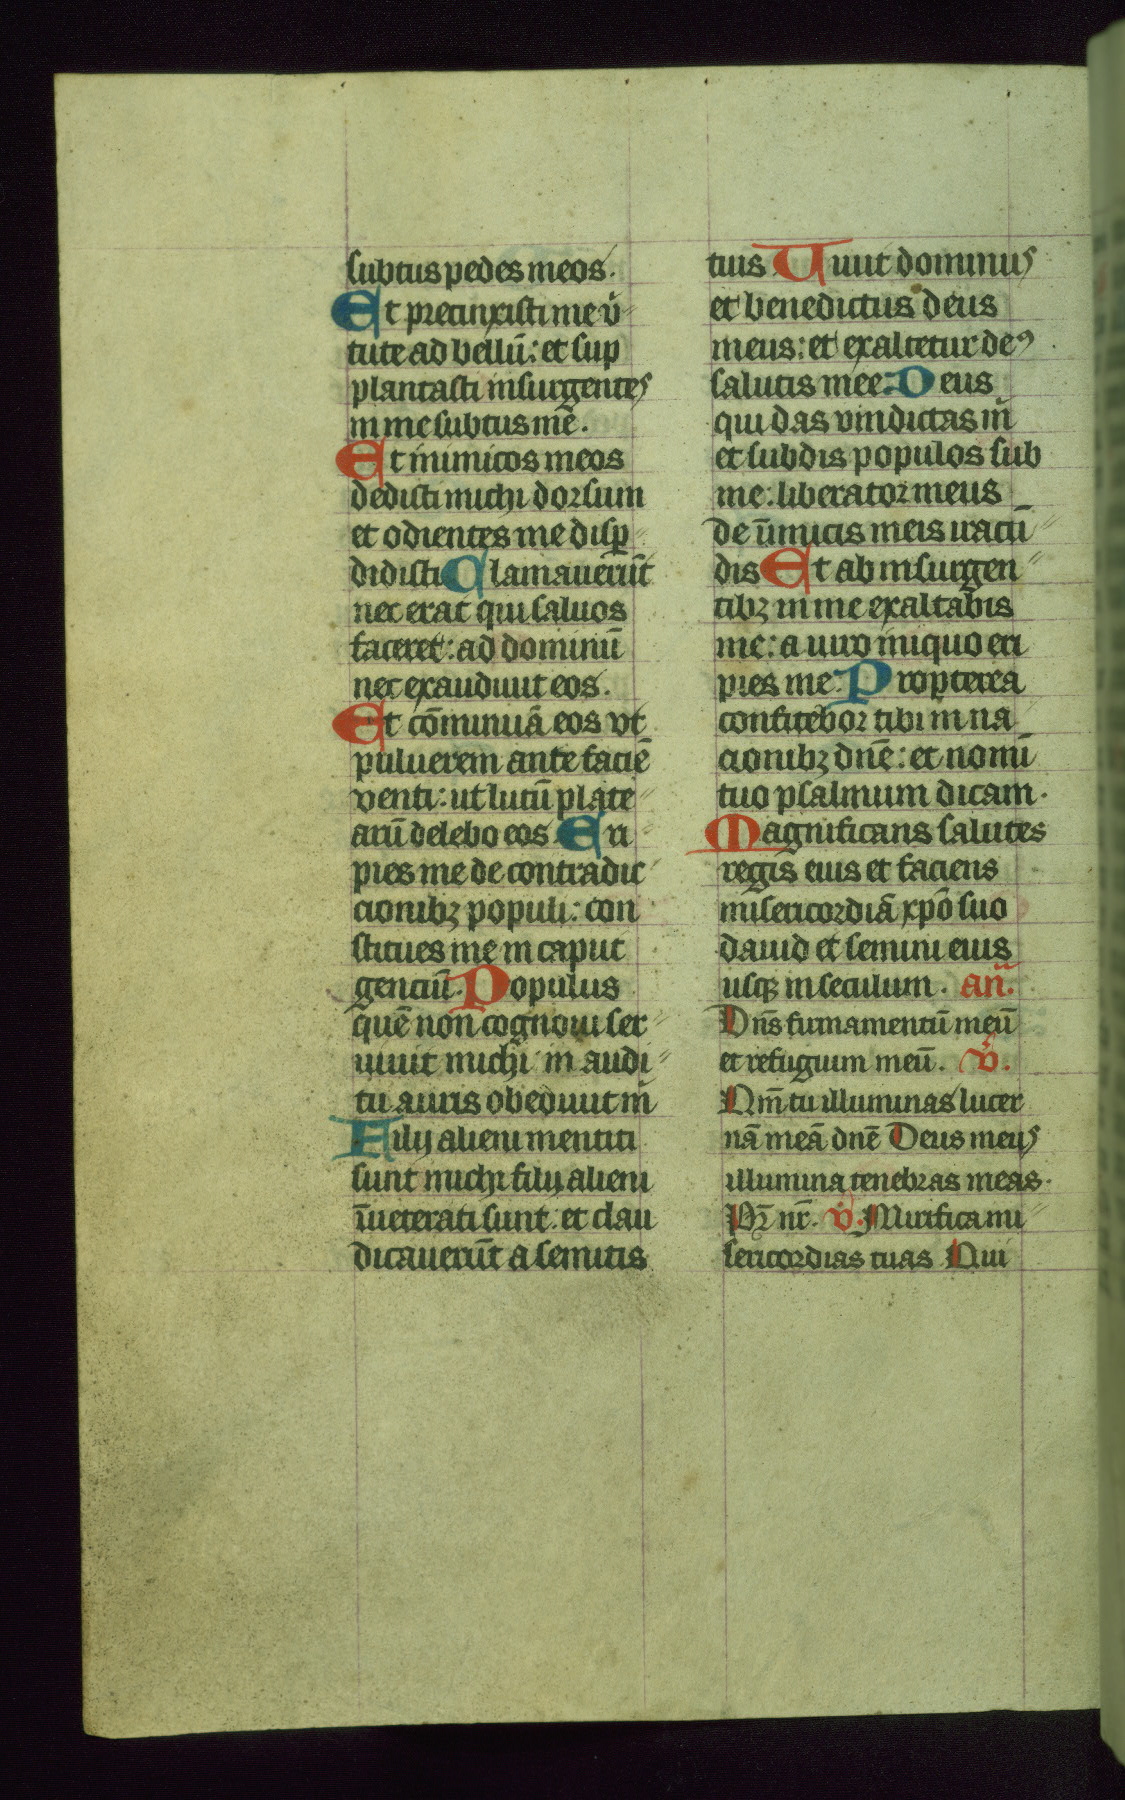 subtus pedes meos.
Et precinxisti me v̉
tute ad bellū: et sup
plantasti insurgentes
in me subtus mē.
Et inimicos meos
dedisti michi dorsum
et odientes me disꝑ
didisti Clamauerūt
nec erat qui saluos
faceret: ad dominū
nec exaudiuit eos.
Et cōminuā eos vt
puluerem ante faciē
venti: ut lutū plate
arū delebo eos Eri
pies me de contradic
cionibꝫ populi: con
stitues me in caput
genciū. Populus
quē non cognoui ser
uiuit michi in audi
tu auris obediuit m̄
Filij alieni mentiti
sunt michi filij alieni
īueterati sunt: et clau
dicauerūt a semitis
tuis Uiuit dominus
et benedictus deus
meus: et exaltetur deꝰ
salutis mee: Deus
qui das vindictas m̄
et subdis populos sub
me: liberator meus
de īimicis meis iracū
dis Et ab insurgen
tibꝫ in me exaltabis
me: a uiro iniquo eri
pies me. Propterea
confitebor tibi in na
cionibꝫ dnē: et nomī
tuo psalmum dicam.
Magnificans salutes
regis eius et faciens
misericordiā xp̄o suo
dauid et semini eius
usqꝫ in seculum. an̄.
Dn̄s firmamentū meū
et refugium meū. v̉.
Qm̄ tu illuminas lucer
nā meā dnē Deus meus
illumina tenebras meas.
Pr̄ nr̄. v̉. Mirifica mi
sericordias tuas Qui